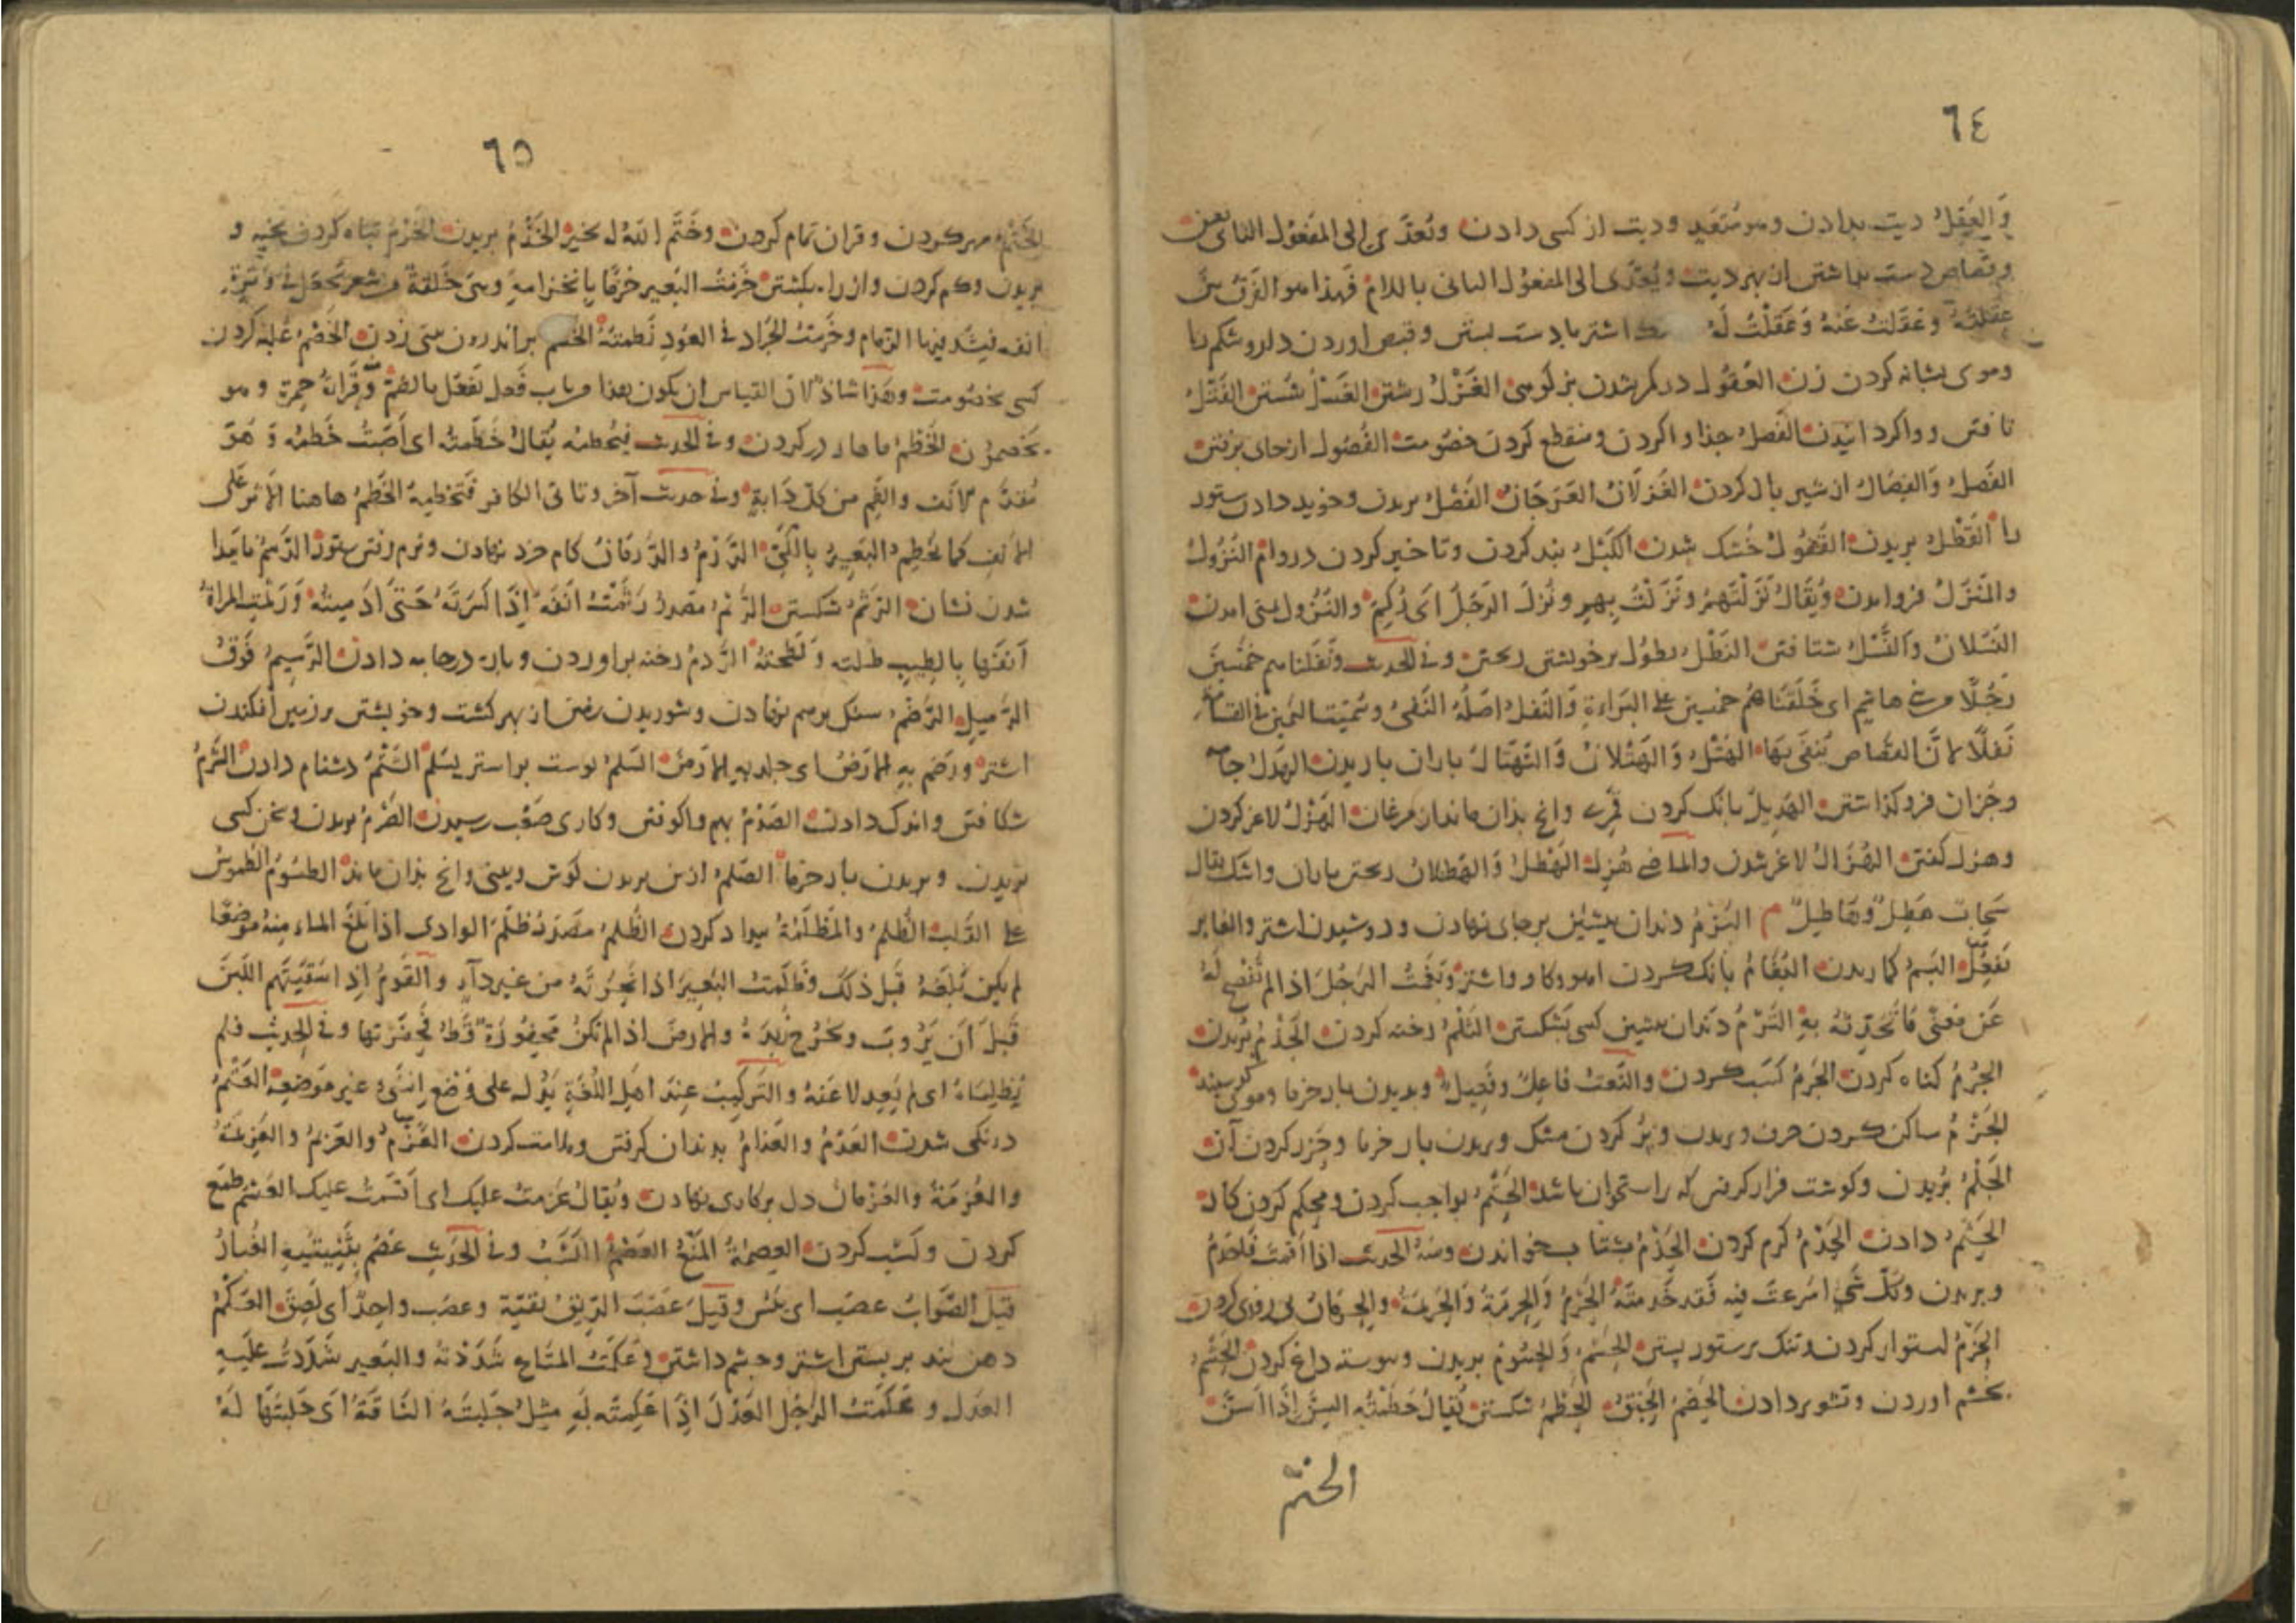 ٦٤
وَالعَقِلُ دیت بدادن وهو مُتَعَدٍ ودیت از کسی دادن وتُعدّی الی المَفعُول الثانی بعن
وقصاص دست بداشتن از بهر دیت ویُعدّی الی المفعُول الثانی باللام فهذا هو الفَرقُ بین
عَقَلتُهُ وعَقَلتُ عَنهُ وَعَقَلْتُ لَهُ اشتر با دست بستن وقبض اوردن دارو شکم را
وموی بشانه کردن زن العُقُول در کمر شدن بز کوهی الغَزْلُ رشتن الغَسْلُ شُستن الفَتْلُ
تافتن وواکردانیدن الفَصلُ جذا واکردن ومنقطع کردن خصُومت الفُصُول از جای برفتن
الفَصلُ وَالفِصَالُ از شیر باز کردن القَزَلَانُ العَرَجَانُ القَصْلُ بریدن وخوید دادن ستور
را القَطْلُ بریدن القُفُولُ خُشک شدن الکَبْلُ بند کردن وتاخیر کردن در وام النُزُولُ
والمَنْزَلُ فرو امدن وَیُقَالُ نَزَلْتَهُمْ ونَزَلْتُ بِهِم ونُزِلَ الرَجُلُ ای زُکِمَ والنُزُول منی امدن
النَسَلانُ وَالنَّسْلُ شتافتن النَطْلُ نطُول بر خویشتن ریختن وفی الحدیث ونَفَلنَاهم خمْسِینَ
رَجُلًا من بنی هاشم ای حَلَّفنَاهُمْ خمسین علی البَرَاءةِ وَالنَفلُ اصلُهُ النَفیُ وسُمّیَت الیَمِین فی القسامة
نَفلًا لانَّ القصاص یُنفَی بَهَا الهَتْلُ وَالهَتْلانُ وَالتَهْتَالُ باران باریدن الهَدلُ جامه
وجُزان فرو کذاشتن الهَدِیلُ بانک کردن قمری وانچ بذان ماند از مرغان الهَزْلُ لاغر کردن
وهزل کفتن الهُزَالُ لاغر شدن والماضی هُزِلَ الهَطْلُ وَالهَطلانُ ریختن باران واشک یقال
سَحابٌ هَطِلٌ وهَاطِلٌ م البَزْمُ دندان پیشین بر جای نهادن ودوشیدن اشتر والغابر
یَفعُلُ البَسمُ کماریدن البُغَامُ بانک کردن اهو وکاو واشتر وبَغَمتُ الرَجُلَ اذا لم تُفْصِح لَهُ
عَن مَعنَی مَا تُحَدِّثهُ بهِ الثَرْمُ دندان پیشین کسی بَشکستن الثَلْمُ رخنه کردن الجَذْمُ بُریدن
الجُرْمُ کناه کردن الجَرمُ کَسَب کردن والنَعتُ فاعِلٌ وفَعِیلٌ وبریدن بار خرما وموی کوسپند
الجَزْمُ ساکن کردن حرف وبریدن وپُر کردن مشک وبریدن بار خرما وحَزر کردن آن
الجَلْمُ بُریدن وکوشت فراز کرفتن که بر استخوان باشد الحَتْمُ بواجب کردن ومحکم کردن کار
الحَثْمُ دادن الحَدْمُ کرم کردن الحَذْمُ بشتاب خواندن ومنهُ الحدیث اذا اقمت فاحذِمْ
وبریدن وکلُّ شَیٍ اسرَعتَ فیهِ فَقد حَذمتَهُ الحَرمُ وَالحِرمَةُ وَالحَرِیمَةُ والحِرمَانُ بی روزی کردن
الحَزْمُ استوار کردن وتنک بر ستور بستن الحَسْمُ وَالحُسُومُ بریدن وپیوسته داغ کردن الحَشْمُ
بخشم اوردن وتشویر دادن الحَضمُ الحَبَقُ الحَطْمُ شکستن یُقالُ حَطَمَتْهُ السِنُّ إذَا اَسَنَّ
الختم
٦٥
الخَتْمُ مهر کردن وقران تمام کردن وخَتَمَ اللهُ له بخیر الخَذْمُ بریدن الخَرْمُ تباه کردن بخیه و
بریدن وکم کردن واز راه بکشتن خَزَمتُ البَعِیر خَزمًا بالخِزامةِ وهی حَلقةٌ من شعر تُجعَل فی وَتَرَةِ
انفه فیُشَدُّ فیها الزمام وخَزمتُ الجَرَاد فی العُودِ نَظمتُهُ الخَشم براندرون بینی زدن الخَصْمُ غلبه کردن
کسی بخصُومت وهَذا شاذٌ لانَّ القیاس ان یکون هذا من باب فَعل یَفعُل بالضمّ وَقَراَءَةُ حمزة وهو
یَخصِمُون الخَطْمُ ماهار در کردن وفی الحدیث فیَخطِمُه یُقالُ خَطَمتُهُ ای أصَبْتُ خَطمَهُ وَهُوَ
مُقدَّم الانف والفم من کلِّ دَابةٍ وفی حدیث آخر وتاتی الکافر فَتَخطِمُهُ الخَطمُ هاهنا الأثر علی
الأنفِ کما یُخطَم البَعِیرُ بِالکَیِّ الدَرْمُ والدَّرَمَانُ کام خرد نهادن ونرم رفتن ستور الرَسْمُ ناپیدا
شدن نشان الرَثْمُ شکستن الرَثمُ مَصدرُ رَثَمْتُ انفَهُ إذَا کَسَرتَهُ حَتی ادمیتَهُ وَرَثمَتِ المراةُ
أنفَهَا بِالطِیبِ طَلَتهُ وَلَطَخَتهُ الرَدمُ رخنه براوردن وپاره در جامه دادن الرَسِیمُ فَوقُ
الذَمِیلِ الرَضْمُ سنک بر هم نهادن وشوریدن زمین از بهر کشت وخویشتن بر زمین افکندن
اشتر ورَضَم بِهِ الأرضَ ای جلد بهِ الأرضَ السَلمُ پوست براستر بسَلَم الشَتْمُ دشنام دادن الشَرْمُ
شکافتن واندک دادن الصَدْمُ بهم واکوفتن وکاری صَعْب رسیدن الصَرْمُ بریدن وسخن کسی
بریدن وبریدن بار خرما الصَلمُ از بن بریدن کوش وبینی وانچ بذان ماند الطُسُومُ الطُموسُ
علی القَلب الظُلمُ والمَظلَمَةُ بیداد کردن الظَلمُ مَصدَرُ ظَلَمَ الوادی اذا بَلَغَ الماءُ مِنهُ مَوضِعًا
لم یکن بَلَغَهُ قَبلَ ذلکَ وظَلَمتُ البَعِیرَ اذا نَحَرتَهُ من غیر دآءٍ والقَومُ إذا سَقَیتَهم اللَبَنَ
قَبلَ اَن یَرُوبَ ویَخرُجَ زُبدَهُ والارضَ اذا لم تکُن مَحفُورَةً قَطُ فَحَفَرتَها وفی الحدیث فلم
یَظلِمَاهُ ای لم یَعدِلَا عَنهُ والتَرکِیبُ عِندَ اهل اللُغَةِ یَدُل علی وَضع الشَیءِ غیر مَوضِعِه العَتْمُ
درنکی شدن العَذْمُ والعَذامُ بدندان کرفتن وملامت کردن العَزْمُ والعَزِیمُ والعَزِیمَةُ
والعُزمَةُ والعُزمانُ دل بر کاری نهادن ویُقالُ عَزمتُ علیک ای اَقسَمتُ علیک العَشمُ طمع
کردن وکَسْب کردن العِصمَةُ المَنْعُ العَصْمُ الکَسْبُ وفی الحَدیثِ عَصَمَ بِثَنِیَّتِیهِ الغُبارُ
قیل الصَّوابُ عصب ای یَبُسَ وقِیلَ عَصَبَ الرِیقُ بفَیهِ وعَصَبَ واحِدٌ ای لَصِقَ العَکْمُ
دهن بند بر بستن اشتر وچشم داشتن وعَکَمتُ المتاعَ شَدَدْتُهُ والبَعیر شَدَدتُ عَلَیهِ
العِدلَ وعَکَمتُ الرَجُلَ العِدْلَ إذَا عَکَمتَه لَهُ مِثلُ حَلَبتُهُ النَاقَةَ ای حَلَبتُهَا لَهُ